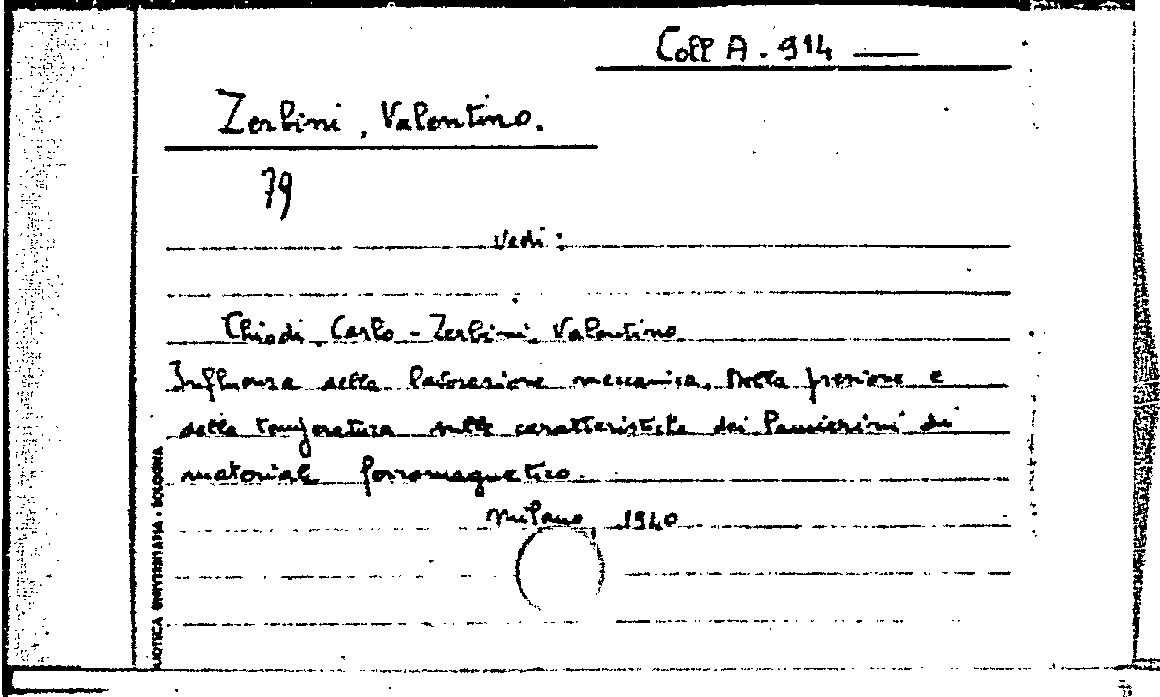 Coll A. 914
Zerbini, Valentino.
79
vedi:
Chiodi, Carlo - Zerbini, Valentino
Influenza della lavorazione meccanica, della pressione e
della temperatura sulle caratteristiche dei lamierini di
materiale ferromagnetico.
Milano, 1940
UNIVERSITARIA - BOLOGNA